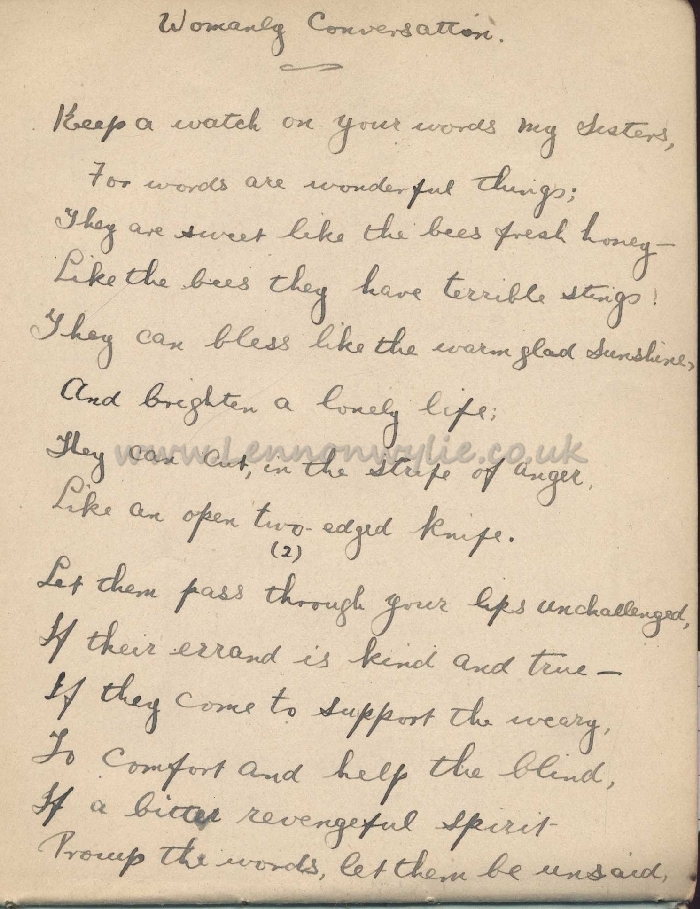 Womanly Conversation.
Keep a watch on your words my Sisters,
For words are wonderful things;
They are sweet like the bees fresh honey—
Like the bees they have terrible stings!
They can bless like the warm glad sunshine,
And brighten a lonely life;
They can cut, in the strife of anger,
Like an open two-edged knife.
(2)
Let them pass through your lips unchallenged,
If their errand is kind and true—
If they come to support the weary,
To comfort and help the blind,
If a bitter revengeful spirit
Promp the words, let them be unsaid,
www.Lennonwylie.co.uk